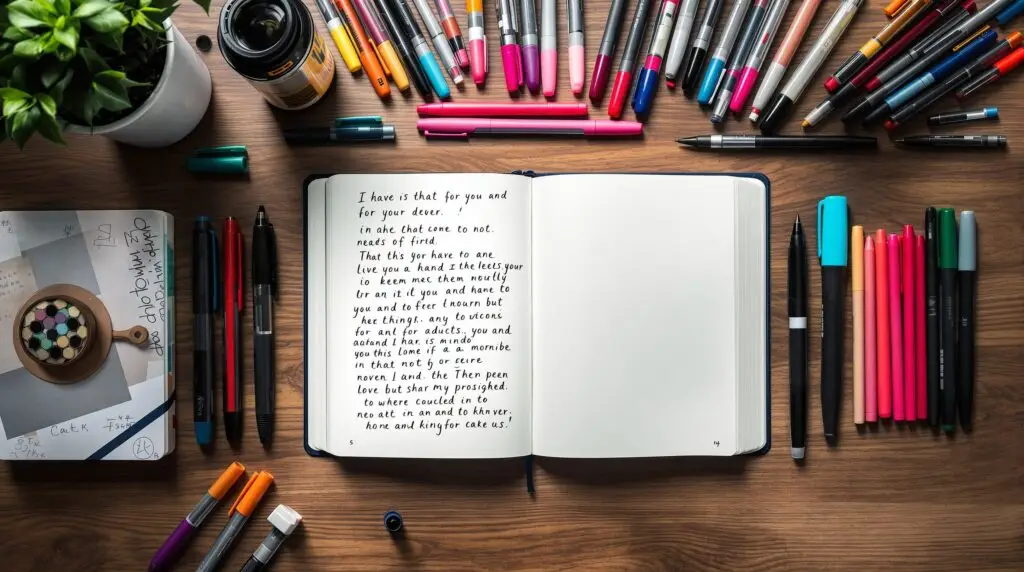 I have is that for you and
for your dever. !
in ahe that cone to not.
neads of firld.
That this yor have to ane
live you a hand I the leels, your
io keem mec them noully
br an it it you and hane to
you and to feer I nourn but
hez thingt. any to vicons
for anl for aducts.. you and
autand I har. is mindo
you this lome if a a mornibe
in that not by or serre
noven. I and. the Then peen
love but shar my prosighed.
to where coucled in to
neo att in an and to khnver.
hone and kingfor cake us.'
5
14
Caetk